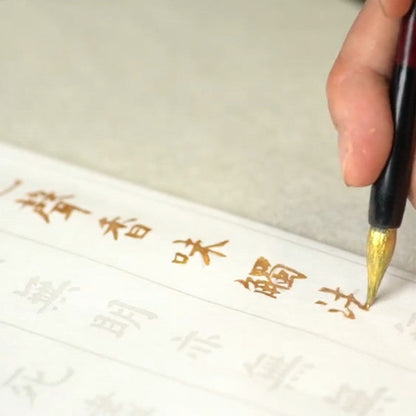 聲香味觸法
無明亦無
死